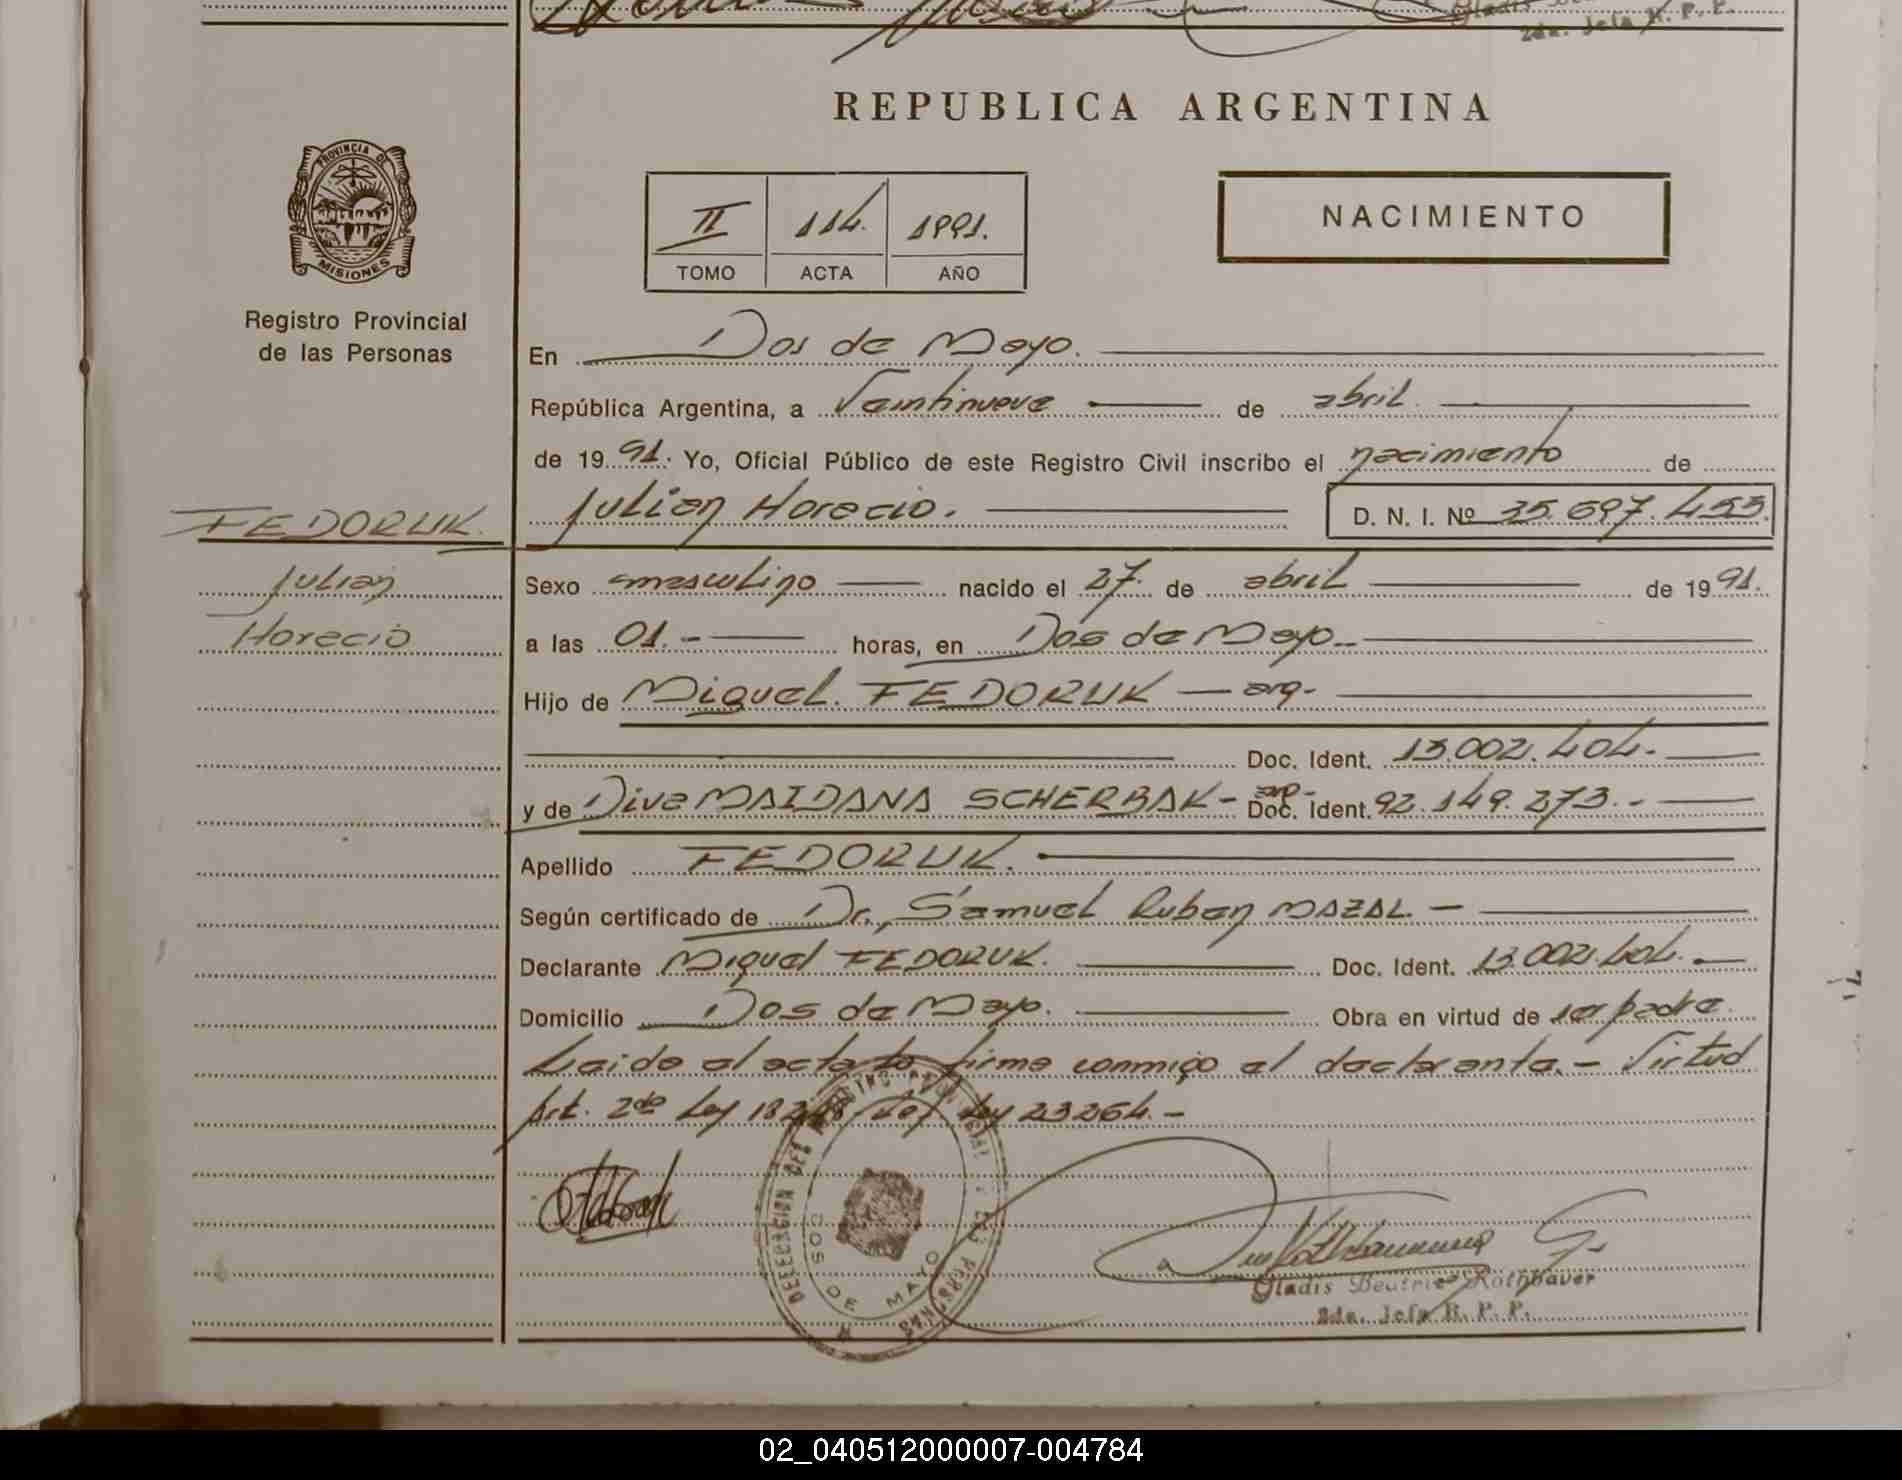 Gladis
2da. Jefa R. P. P.
REPUBLICA ARGENTINA
PROVINCIA DE
MISIONES
Registro Provincial
de las Personas
II 114. 1991.
TOMO ACTA AÑO
NACIMIENTO
En Dos de Mayo.
República Argentina, a Veintinueve de abril
de 1991. Yo, Oficial Público de este Registro Civil inscribo el nacimiento de
Julian Horacio. D. N. I. Nº 35.697.453.
FEDORUK.
Julian
Horacio
Sexo masculino nacido el 27. de abril de 1991.
a las 01.- horas, en Dos de Mayo.-
Hijo de Miguel. FEDORUK — arg.
Doc. Ident. 13.002.404.-
y de Diva MAIDANA SCHERBAK - Doc. Ident. 92.149.273.-
Apellido FEDORUK.
Según certificado de Dr., Samuel Ruben MAZAL. -
Declarante Miguel FEDORUK. Doc. Ident. 13.002.404.-
Domicilio Dos de Mayo. Obra en virtud de ser padre.
Leido el acta la firma conmigo el declarante.- Virtud
Art. 2do Ley 18248 Ley 23264.-
DELEGACION DEL REGISTRO PROVINCIAL DE LAS PERSONAS
DOS DE MAYO
Gladis Beatriz Rothbauer
2da. Jefa R. P. P.
02_040512000007-004784